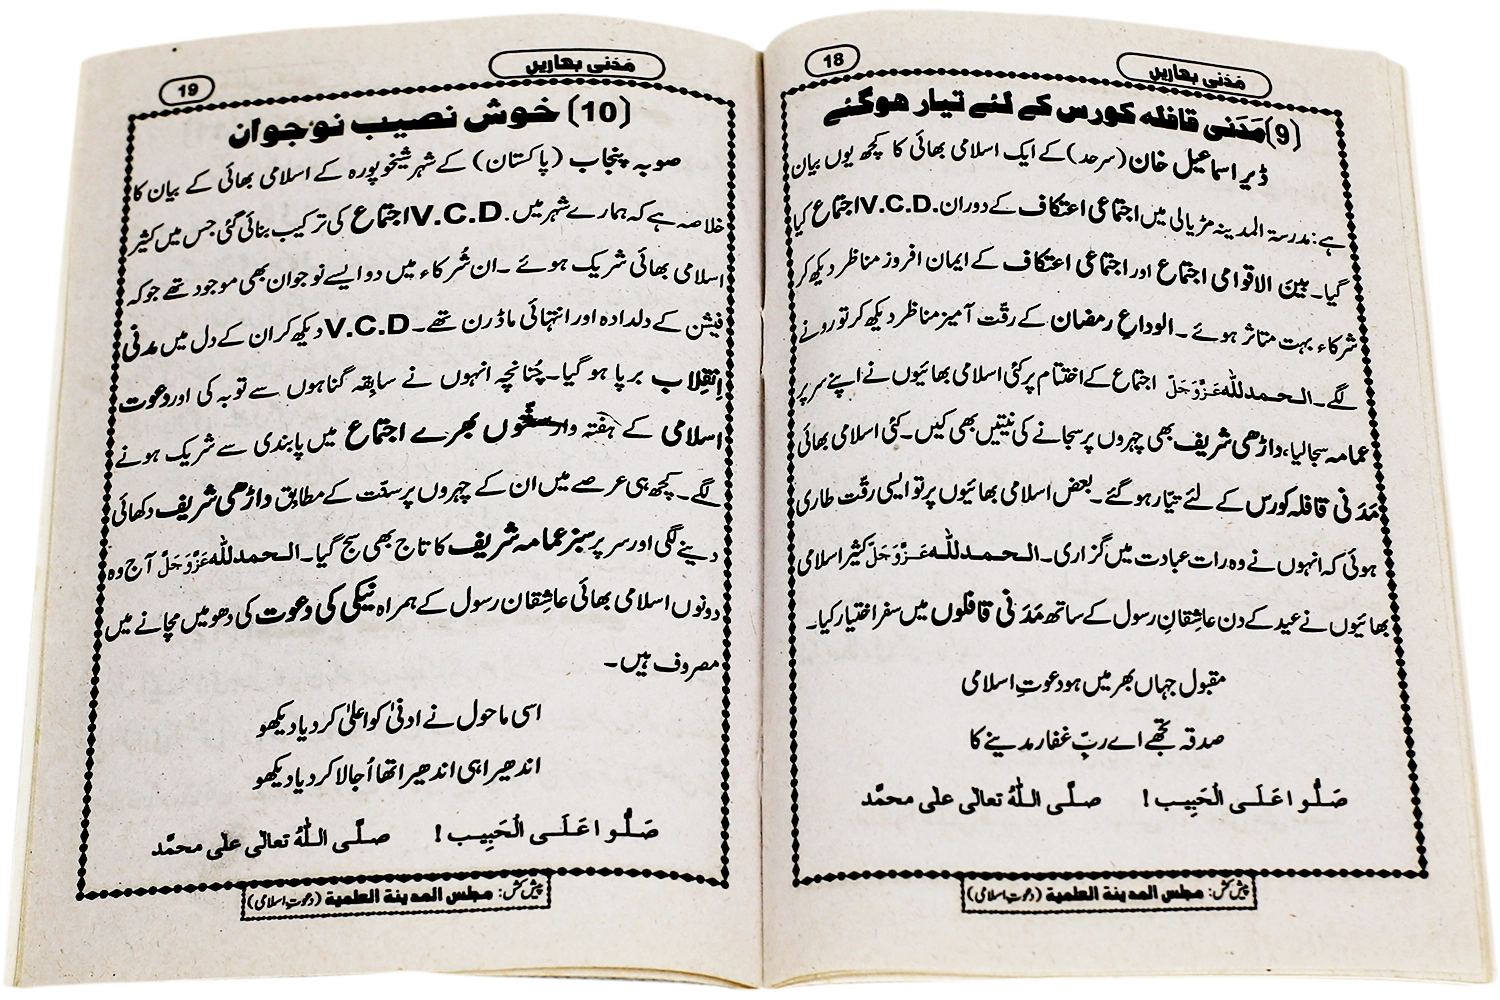 مَدَنی بہاریں
18
(9) مَدَنی قافلہ کورس کے لئے تیار ہوگئے
ڈیر اسماعیل خان (سرحد) کے ایک اسلامی بھائی کا کچھ یوں بیان
ہے: مدرسۃ المدینہ مڑیالی میں اجتماعی اعتکاف کے دوران .V.C.D اجتماع کیا
گیا۔ بین الاقوامی اجتماع اور اجتماعی اعتکاف کے ایمان افروز مناظر دیکھ کر
شرکاء بہت متاثر ہوئے۔ الوداعِ رمضان کے رقّت آمیز مناظر دیکھ کر تو رونے
لگے۔ الحمدللّٰہ عَزَّوَجَلَّ اجتماع کے اختتام پر کئی اسلامی بھائیوں نے اپنے سر پر
عمامہ سجالیا، داڑھی شریف بھی چہروں پر سجانے کی نیتیں بھی کیں۔ کئی اسلامی بھائی
مَدَنی قافلہ کورس کے لئے تیّار ہوگئے۔ بعض اسلامی بھائیوں پر تو ایسی رقّت طاری
ہوئی کہ انہوں نے وہ رات عبادت میں گزاری۔ الحمدللّٰہ عَزَّوَجَلَّ کثیر اسلامی
بھائیوں نے عید کے دن عاشِقانِ رسول کے ساتھ مَدَنی قافلوں میں سفر اختیار کیا۔
مقبول جہاں بھر میں ہو دعوتِ اسلامی
صدقہ تجھے اے ربِّ غفار مدینے کا
صَلُّوا عَلَی الْحَبِیب ! صلَّی اللّٰہُ تعالٰی علٰی محمَّد
پیش کش: مجلس المدینۃ العلمیۃ (دعوتِ اسلامی)
مَدَنی بہاریں
19
(10) خوش نصیب نوجوان
صوبہ پنجاب (پاکستان) کے شہر شیخوپورہ کے اسلامی بھائی کے بیان کا
خلاصہ ہے کہ ہمارے شہر میں .V.C.D اجتماع کی ترکیب بنائی گئی جس میں کثیر
اسلامی بھائی شریک ہوئے۔ ان شُرکاء میں دو ایسے نوجوان بھی موجود تھے جو کہ
فیشن کے دلدادہ اور انتہائی ماڈرن تھے۔ V.C.D دیکھ کر ان کے دل میں مدنی
اِنقِلاب برپا ہو گیا۔ چُنانچِہ انہوں نے سابِقہ گناہوں سے توبہ کی اور دعوت
اسلامی کے ہفتہ وار سنّتوں بھرے اجتماع میں پابندی سے شریک ہونے
لگے۔ کچھ ہی عرصے میں ان کے چہروں پر سنّت کے مطابِق داڑھی شریف دکھائی
دینے لگی اور سر پر سبز عمامہ شریف کا تاج بھی سج گیا۔ الحمدللّٰہ عَزَّوَجَلَّ آج وہ
دونوں اسلامی بھائی عاشِقان رسول کے ہمراہ نیکی کی دعوت کی دھومیں مچانے میں
مصروف ہیں۔
اسی ماحول نے ادنیٰ کو اعلیٰ کردیا دیکھو
اندھیرا ہی اندھیرا تھا اُجالا کردیا دیکھو
صَلُّوا عَلَی الْحَبِیب ! صلَّی اللّٰہُ تعالٰی علٰی محمَّد
پیش کش: مجلس المدینۃ العلمیۃ (دعوتِ اسلامی)